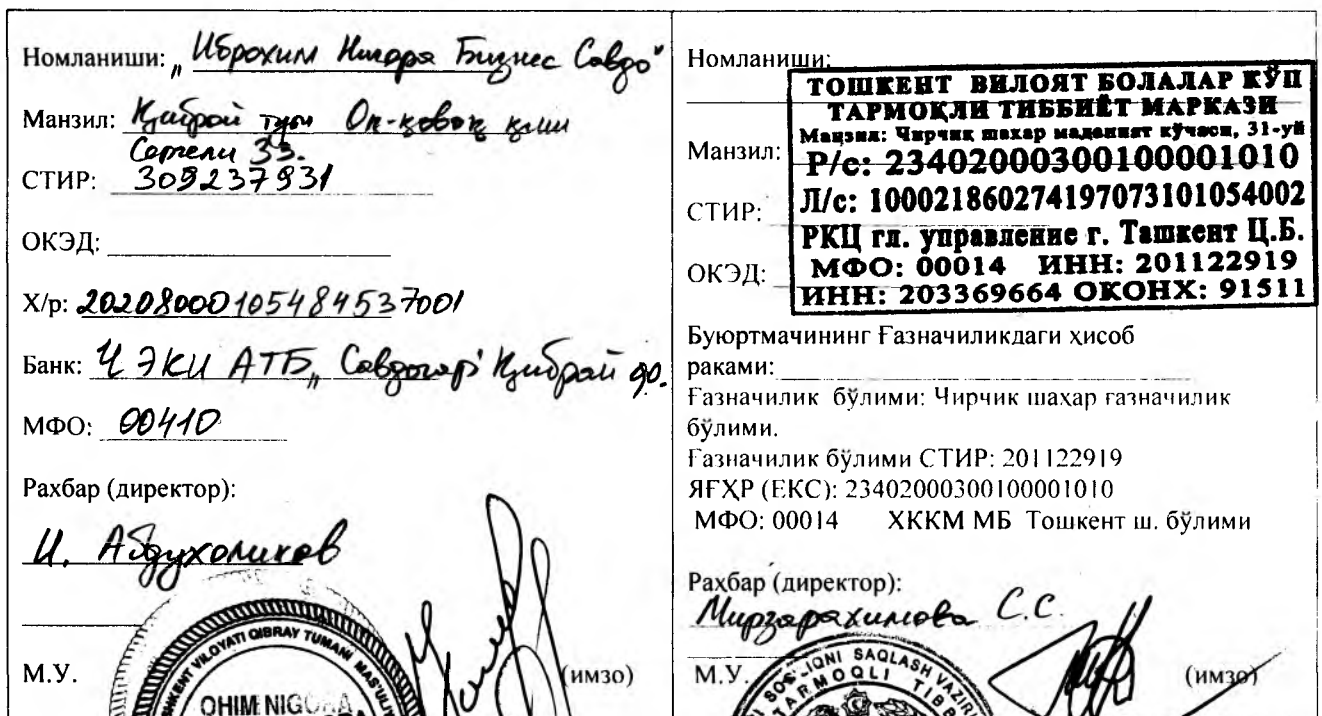 Номланиши: „Иброхим Нигора Бизнес Савдо"
Манзил: Қиброй туман Оқ-қовоқ қ
Сергели 33.
СТИР: 309237931
ОКЭД:
Х/р: 20208000105484537001
Банк: ЧЭКИ АТБ „Савдогар" Қибрай ф.
МФО: 00410
Рахбар (директор):
И. Абдухоликов
М.У.
(имзо)
TUMANI MAS'ULIY
SHKENT VILOYATI QIBRAY
OHIM NIGORA
Номланиши:
ТОШКЕНТ ВИЛОЯТ БОЛАЛАР КЎП
ТАРМОҚЛИ ТИББИЁТ МАРКАЗИ
Манзил: Чирчик шахар маданият кўчаси, 31-уй
Манзил:
Р/с: 23402000300100001010
СТИР:
Л/с: 100021860274197073101054002
РКЦ гл. управление г. Ташкент Ц.Б.
ОКЭД:
МФО: 00014 ИНН: 201122919
ИНН: 203369664 ОКОНХ: 91511
Буюртмачининг Ғазначиликдаги ҳисоб
раками:
Ғазначилик бўлими: Чирчик шаҳар ғазначилик
бўлими.
Ғазначилик бўлими СТИР: 201122919
ЯҒҲР (ЕКС): 23402000300100001010
МФО: 00014 ХККМ МБ Тошкент ш. бўлими
Раҳбар (директор):
Мирзарахимова С.С.
М.У.
(имзо)
SOG'LIQNI SAQLASH VAZIRL
TARMOQLI TIBB